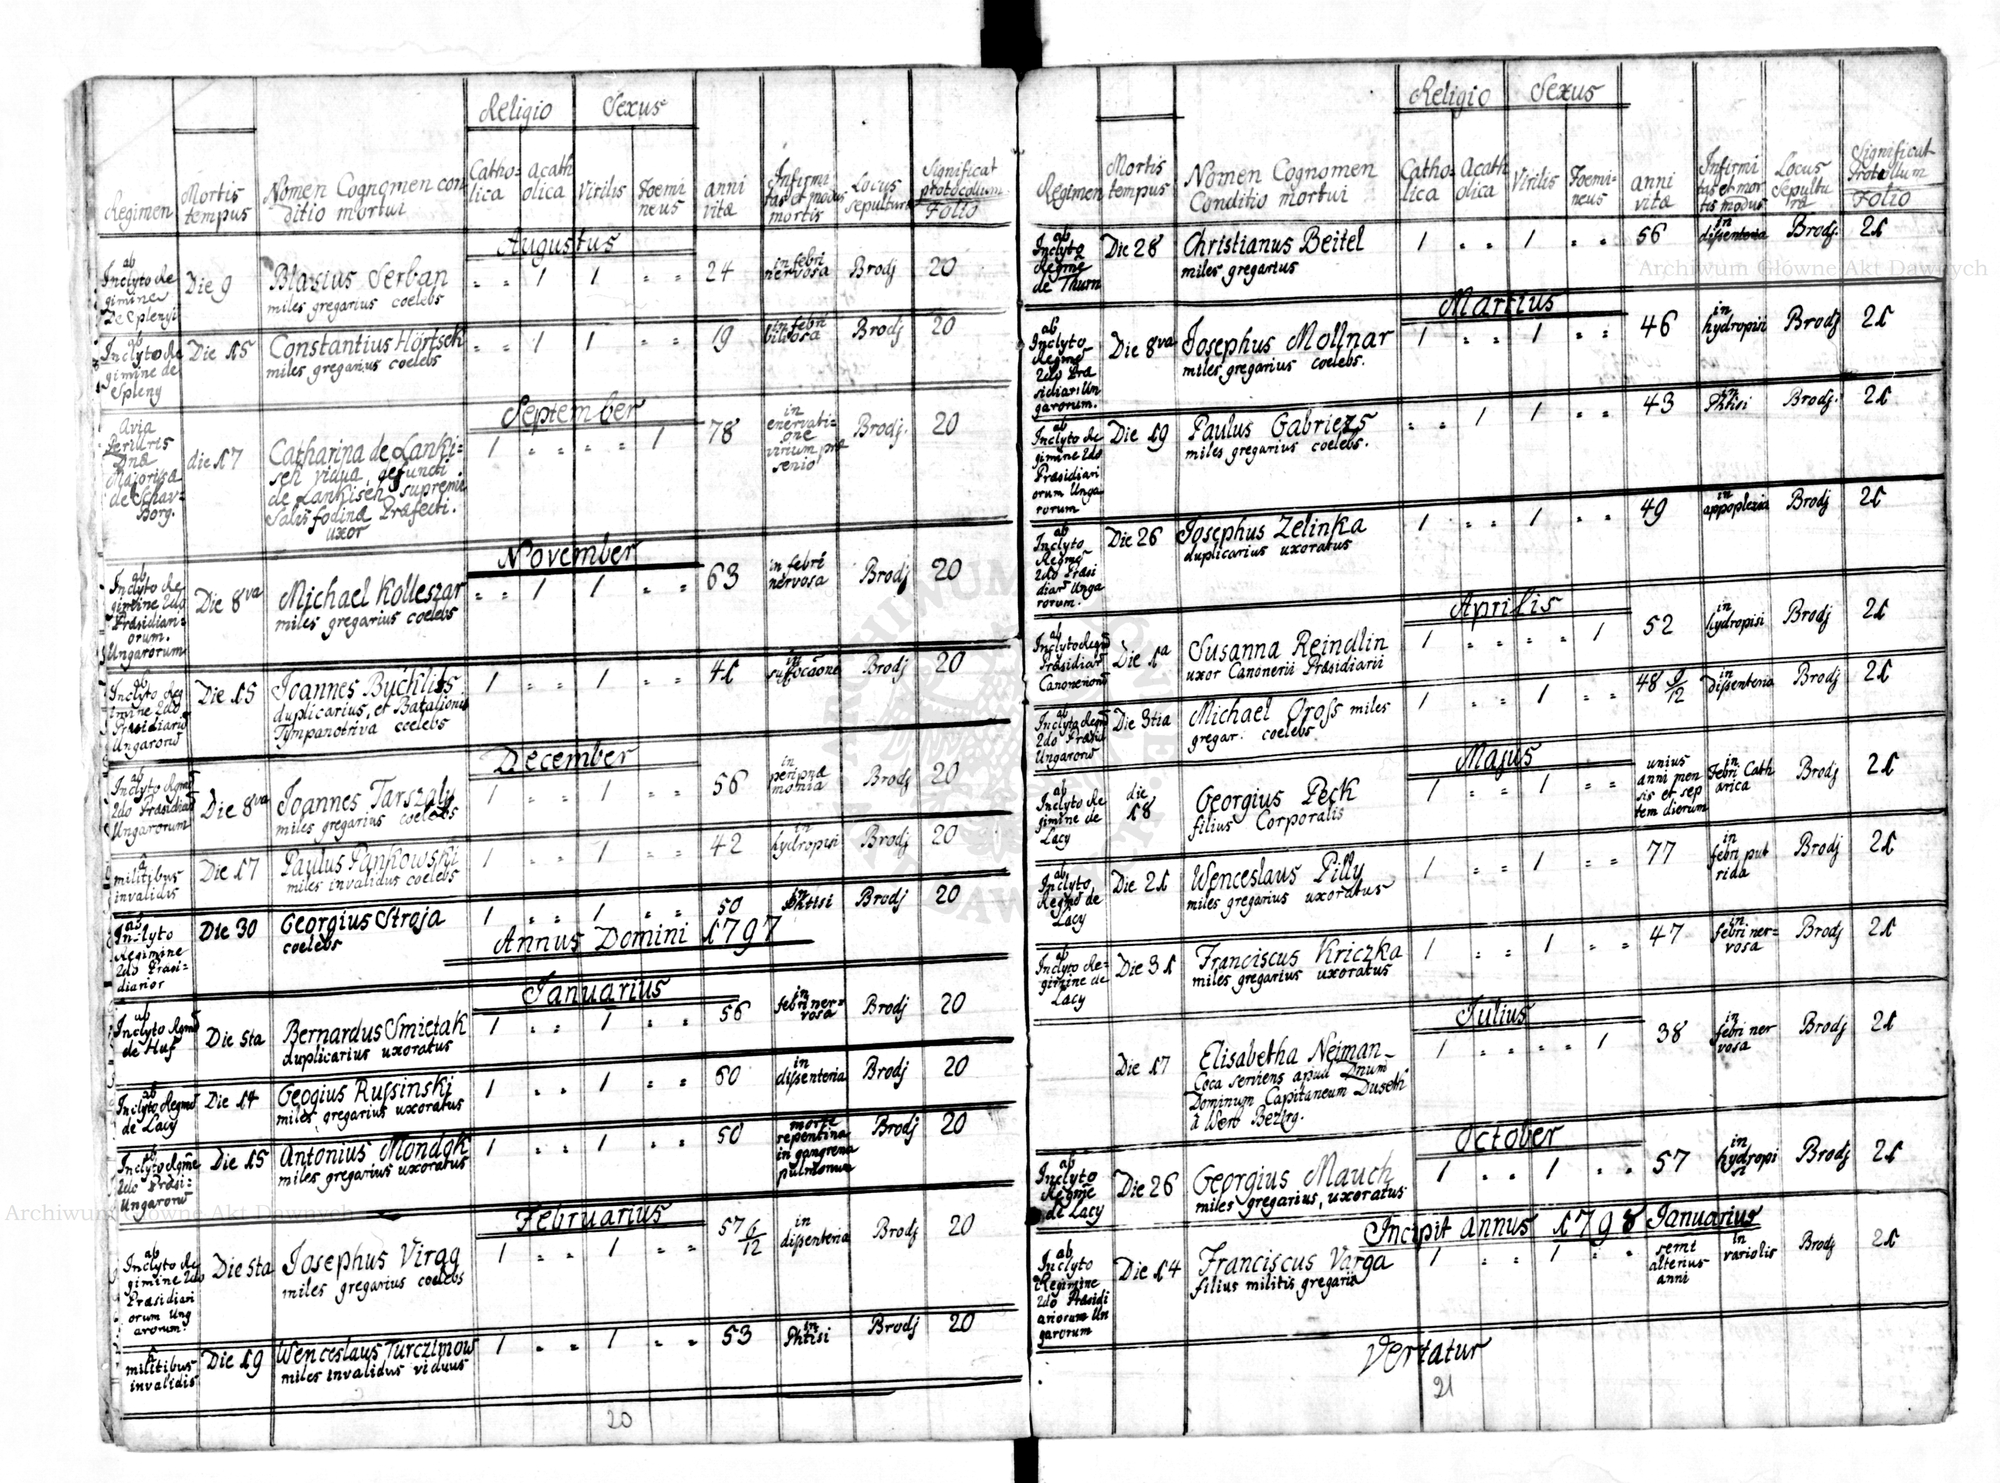 Religio Sexus
Regimen Mortis tempus Nomen Cognomen conditio mortui Catholica Acatholica Virilis Foemineus anni vitæ Infirmitas et modus mortis Locus sepulturæ Significat protocollum Folio
Augustus
ab Inclyto Regimine Die 9 Blasius Serban 1 1 24 in febri nervosa Brodj 20
miles gregarius coelebs
ab Inclyto Regimine de Spleny Die 15 Constantius Hörtsek 1 1 19 in febri biliosa Brodj 20
miles gregarius coelebs
September
Avia Perillris Dnæ Majorissa de Schavborg. die 17 Catharina de Lankisch vidua defuncti 1 1 78 in enervatione virium præ senio Brodj. 20
de Lankisch supremi
Salis fodinæ Præfecti.
uxor
November
ab Inclyto Regimine 2do Præsidianorum. Ungarorum Die 8va Michael Kolleszar 1 1 63 in febri nervosa Brodj 20
miles gregarius coelebs
ab Inclyto Regimine 2do Præsidiario Ungarorū Die 15 Joannes Büchlits 1 1 41 in suffocaōne Brodj 20
duplicarius, et Batalionis
Tympanotriva coelebs
December
ab Inclyto Rgmē 2do Præsidiar Ungarorum Die 8va Joannes Tarszaly 1 1 56 in peripneumonia Brodj 20
miles gregarius coelebs
a militibus invalidis Die 17 Paulus Pankowski 1 1 42 in hydropisi Brodj 20
miles invalidus coelebs
ab Inclyto Regimine 2do Præsidiarior Die 30 Georgius Stroja 1 1 50 in phtisi Brodj 20
coelebs
Annus Domini 1797
Januarius
ab Inclyto Rgmē de Huf Die 5ta Bernardus Smietak 1 1 56 in febri nervosa Brodj 20
duplicarius uxoratus
ab Inclyto Regmē de Lacy Die 14 Geogius Russinski 1 1 60 in dissenteria Brodj 20
miles gregarius uxoratus
ab Inclyto Rgme 2do Præsi= Ungarorū Die 15 Antonius Mondok 1 1 50 morte repentina in gangrena pulmonum Brodj 20
miles gregarius uxoratus
Februarius
ab Inclyto Regimine 2do Præsidiariorum Ungarorum. Die 5ta Josephus Virag 1 1 57 6/12 in dissenteria Brodj 20
miles gregarius coelebs
a militibus invalidis Die 19 Wenceslaus Turczinow 1 1 53 in Phtisi Brodj 20
miles invalidus viduus
20
Religio Sexus
Regimen Mortis tempus Nomen Cognomen Conditio mortui Catholica Acatholica Virilis Foemineus anni vitæ Infirmitas et mortis modus Locus Sepulturæ Significat Protollum Folio
ab Inclyto Regmē de Thurn Die 28 Christianus Beitel 1 1 56 in dissenteria Brodj. 21
miles gregarius
Martius
ab Inclyto Regmē 2do Præsidiari Ungarorum. Die 8va Josephus Mollnar 1 1 46 in hydropisi Brodj 21
miles gregarius coelebs.
ab Inclyto Regimine 2do Præsidiariorum Ungarorum Die 19 Paulus Gabriezs 1 1 43 in Phtisi Brodj. 21
miles gregarius coelebs.
ab Inclyto Regmē 2do Præsidiar Ungarorum. Die 26 Josephus Zelinka 1 1 49 in appoplexia Brodj 21
duplicarius uxoratus
Aprilis
ab Inclyto Regmē Præsidiar Canoneriorū Die 1a Susanna Reindlin 1 1 52 in hydropisi Brodj 21
uxor Canonerii Præsidiarii
ab Inclyto Regmē 2do Præsidi Ungarorū Die 3tia Michael Oross miles 1 1 48 9/12 in dissenteria Brodj 21
gregar: coelebs
Majus
ab Inclyto Regimine de Lacy die 18 Georgius Peck 1 1 unius anni mensis et septem dierum in Febri Catharica Brodj 21
filius Corporalis
ab Inclyto Regmē de Lacy Die 21 Wenceslaus Pilly 1 1 77 in febri putrida Brodj 21
miles gregarius uxoratus
ab Inclyto Regimine de Lacy Die 31 Franciscus Kriczka 1 1 47 in febri nervosa Brodj 21
miles gregarius uxoratus
Julius
Die 17 Elisabetha Neiman 1 1 38 in febri nervosa Brodj 21
Coca serviens apud Dnum
Dominum Capitaneum Duseth
October
ab Inclyto Regmē de Lacy Die 26 Georgius Mauch 1 1 57 in hydropisi Brodj 21
miles gregarius, uxoratus
Incipit annus 1798 Januarius
ab Inclyto Regimine 2do Præsidiariorum Ungarorum Die 14 Franciscus Varga 1 1 semi alterius anni in variolis Brodj 21
filius militis gregarii
Vertatur
21
Archiwum Główne Akt Dawnych
Archiwum Główne Akt Dawnych